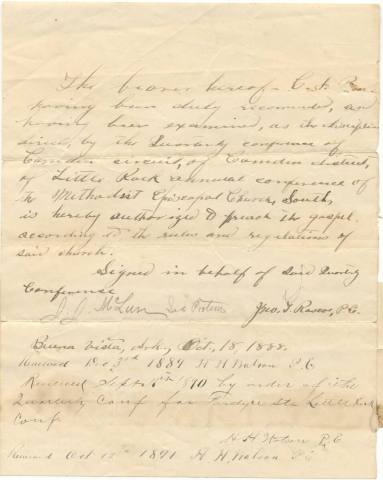 The bearer hereof C. F.
having been duly recommended, and
having been examined, as the discipline
directs, by the Quarterly conference of
Camden circuit, of Camden district,
of Little Rock annual conference of
the Methodist Episcopal Church, South,
is hereby authorized to preach the gospel
according to the rules and regulations of
said church.
Signed in behalf of said Quarterly
Conference
Buena Vista, Ark, Oct, 18, 1888.
Renewed Dec 3rd 1889 H H Watson P. C
Renewed Sept 1890 by order of the
Quarterly Conf for Fordyce Sta Little Rock
Conf
H H Watson P. C
Renewed Oct 1891 H H Watson P C